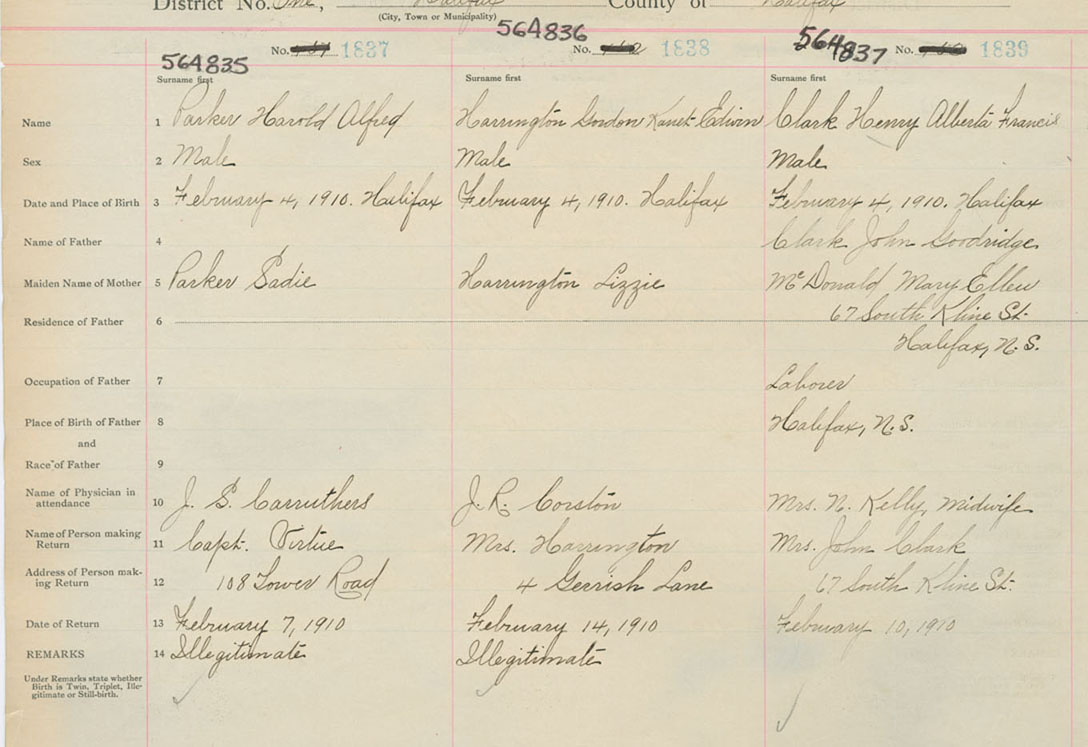 District No. One, Halifax County of Halifax
(City, Town or Municipality)
564835 No. 1837
564836 No. 1838
564837 No. 1839
Surname first Surname first Surname first
Name 1 Parker Harold Alfred Harrington Gordon Edwin Clark Henry Alberta Francis
Sex 2 Male Male Male
Date and Place of Birth 3 February 4, 1910. Halifax February 4, 1910. Halifax February 4, 1910. Halifax
Name of Father 4 Clark John Goodridge
Maiden Name of Mother 5 Parker Sadie Harrington Lizzie McDonald Mary Ellen
Residence of Father 6 67 South Kline St.
Halifax, N.S.
Occupation of Father 7 Laborer
Place of Birth of Father 8 Halifax, N.S.
and
Race of Father 9
Name of Physician in
attendance 10 J. S. Carruthers J. R. Corston Mrs. N. Kelly, Midwife
Name of Person making
Return 11 Capt. Virtue Mrs. Harrington Mrs. John Clark
Address of Person mak-
ing Return 12 108 Tower Road 4 Gerrish Lane 67 South Kline St.
Date of Return 13 February 7, 1910 February 14, 1910 February 10, 1910
REMARKS 14 Illegitimate Illegitimate
Under Remarks state whether
Birth is Twin, Triplet, Ille-
gitimate or Still-birth.